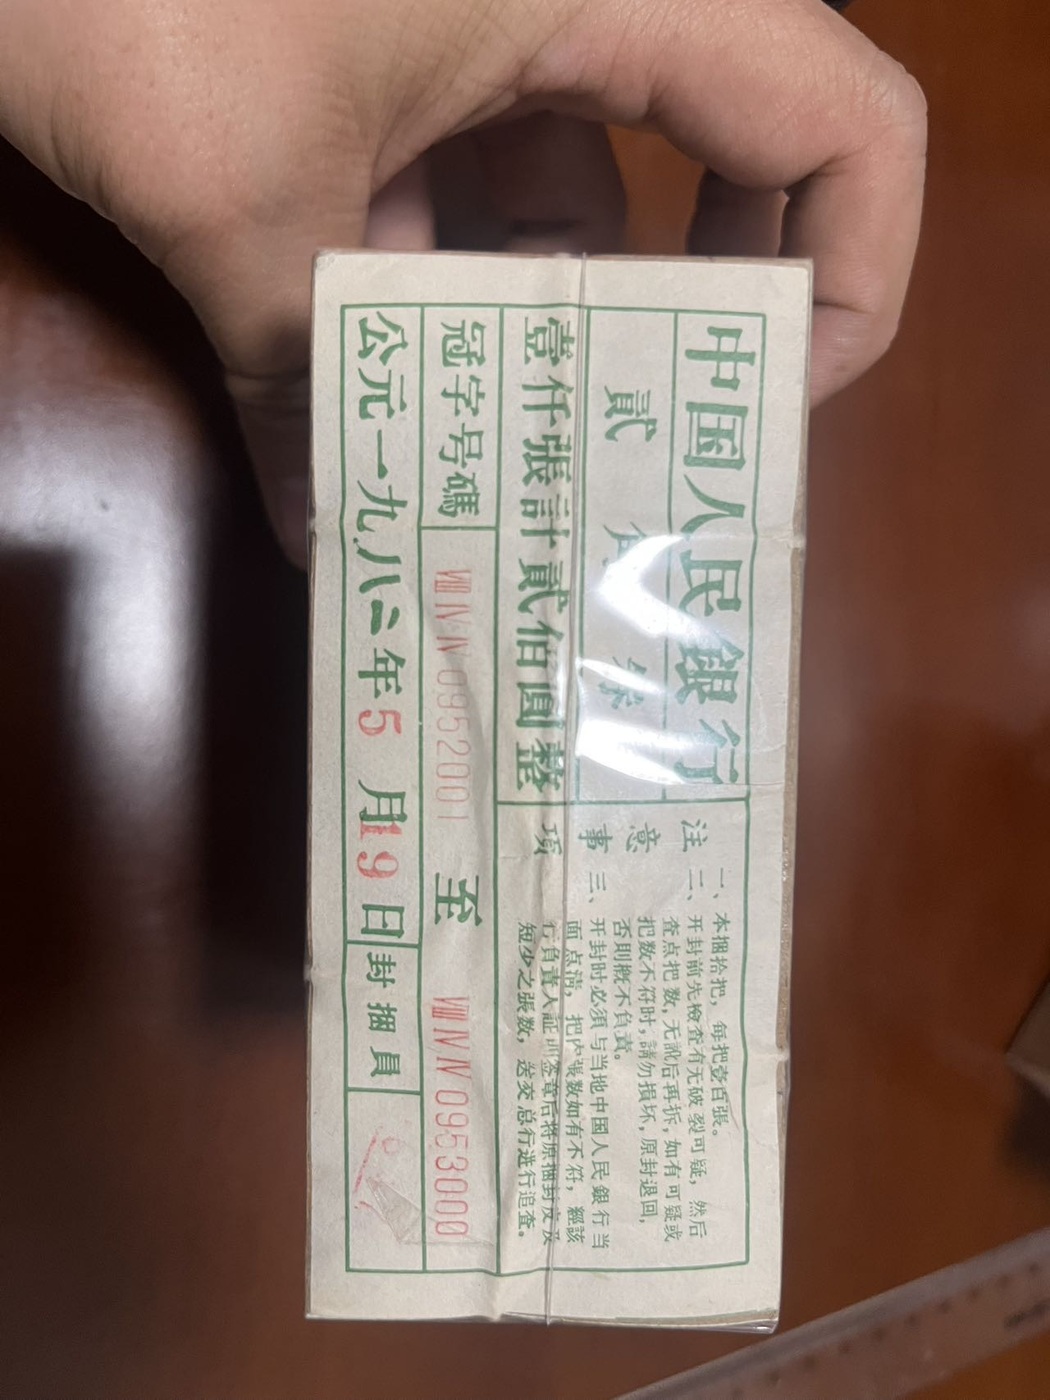 中国人民銀行
貳角券
壹仟張計貳佰圓整
冠字号碼 ⅧⅣⅣ 0952001 至 ⅧⅣⅣ 0953000
公元一九八二年5月19日 封捆員
注意事項
一、本捆拾把，每把壹百張。
二、开封前先檢查有无破裂可疑，然后
查点把数，无訛后再拆，如有可疑或
把数不符时，請勿損坏，原封退回，
否則概不負責。
三、开封时必須与当地中国人民銀行当
面点清，把内張数如有不符，經該
行負責人証明签章后将原捆封皮及
短少之張数，送交总行进行追查。